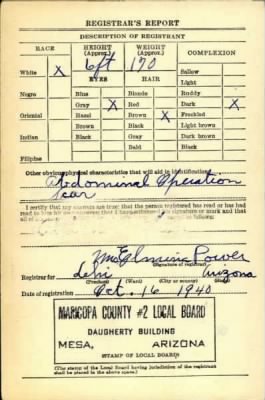 REGISTRAR'S REPORT
DESCRIPTION OF REGISTRANT
RACE HEIGHT (Approx.) WEIGHT (Approx.) COMPLEXION
6ft 170
White X EYES HAIR Sallow
Light
Negro Blue Blonde Ruddy
Gray X Red Dark X
Oriental Hazel Brown X Freckled
Brown Black Light brown
Indian Black Gray Dark brown
Bald Black
Filipino
Other obvious physical characteristics that will aid in identification
Abdominal Operation
Scar
I certify that my answers are true; that the person registered has read or has had read to him his own answers; that I have witnessed his signature or mark and that all of
Mrs Elmina Power
(Signature of registrar)
Registrar for Lehi Arizona
(Precinct) (Ward) (City or county) (State)
Date of registration Oct. 16 1940
MARICOPA COUNTY #2 LOCAL BOARD
DAUGHERTY BUILDING
MESA, ARIZONA
(STAMP OF LOCAL BOARD)
(The stamp of the Local Board having jurisdiction of the registrant shall be placed in the above space.)